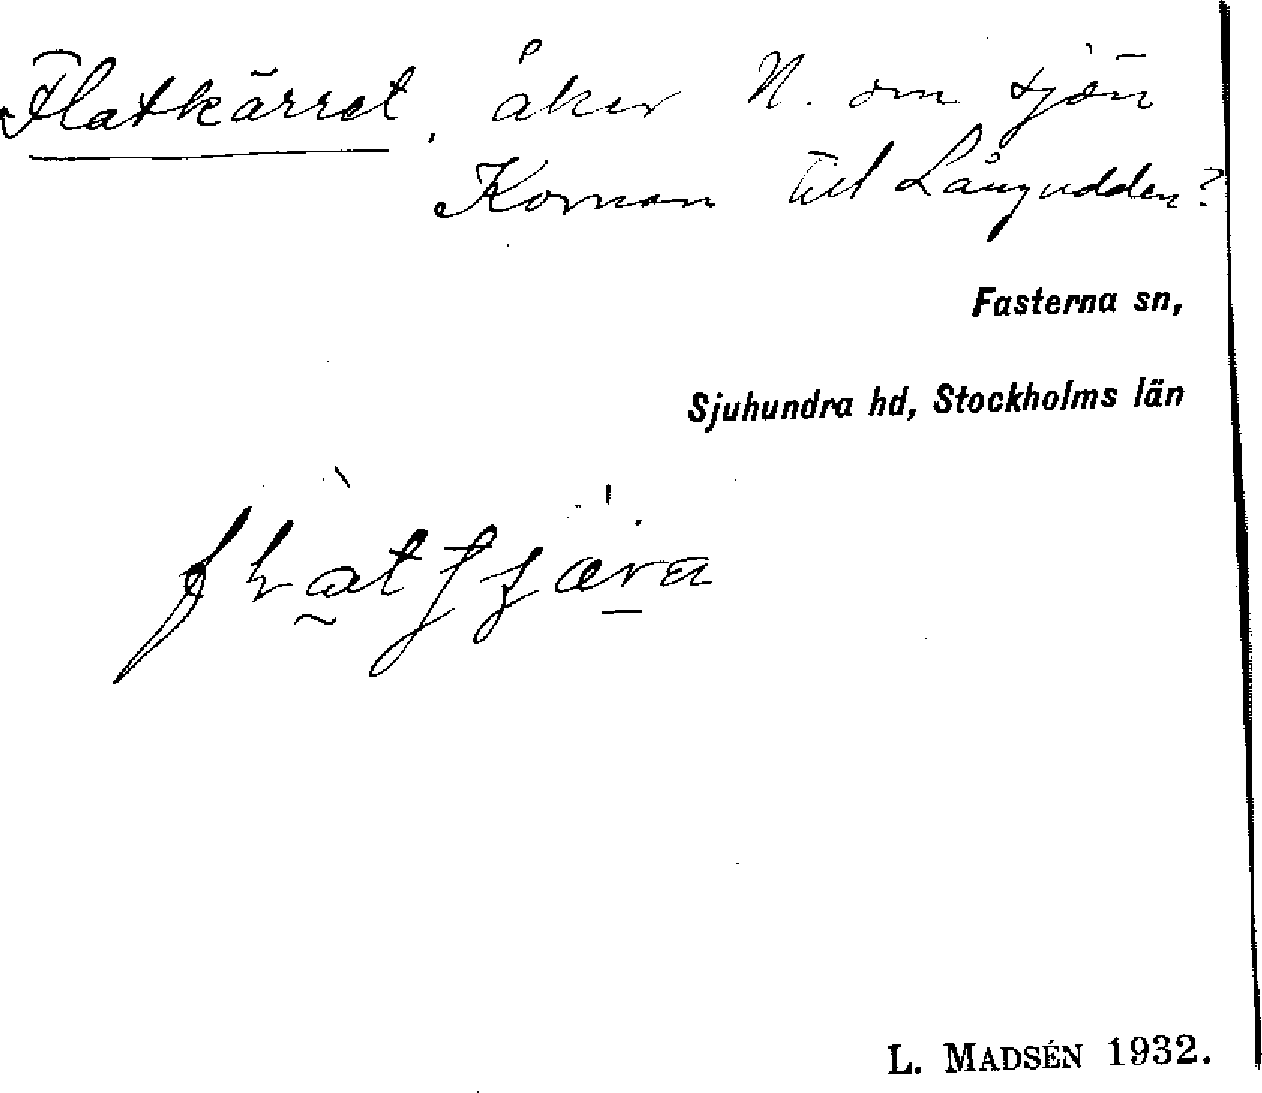 Flatkärret, åker N. om sjön
Kornan till Långudden?
Fasterna sn,
Sjuhundra hd, Stockholms län
L. MADSÉN 1932.